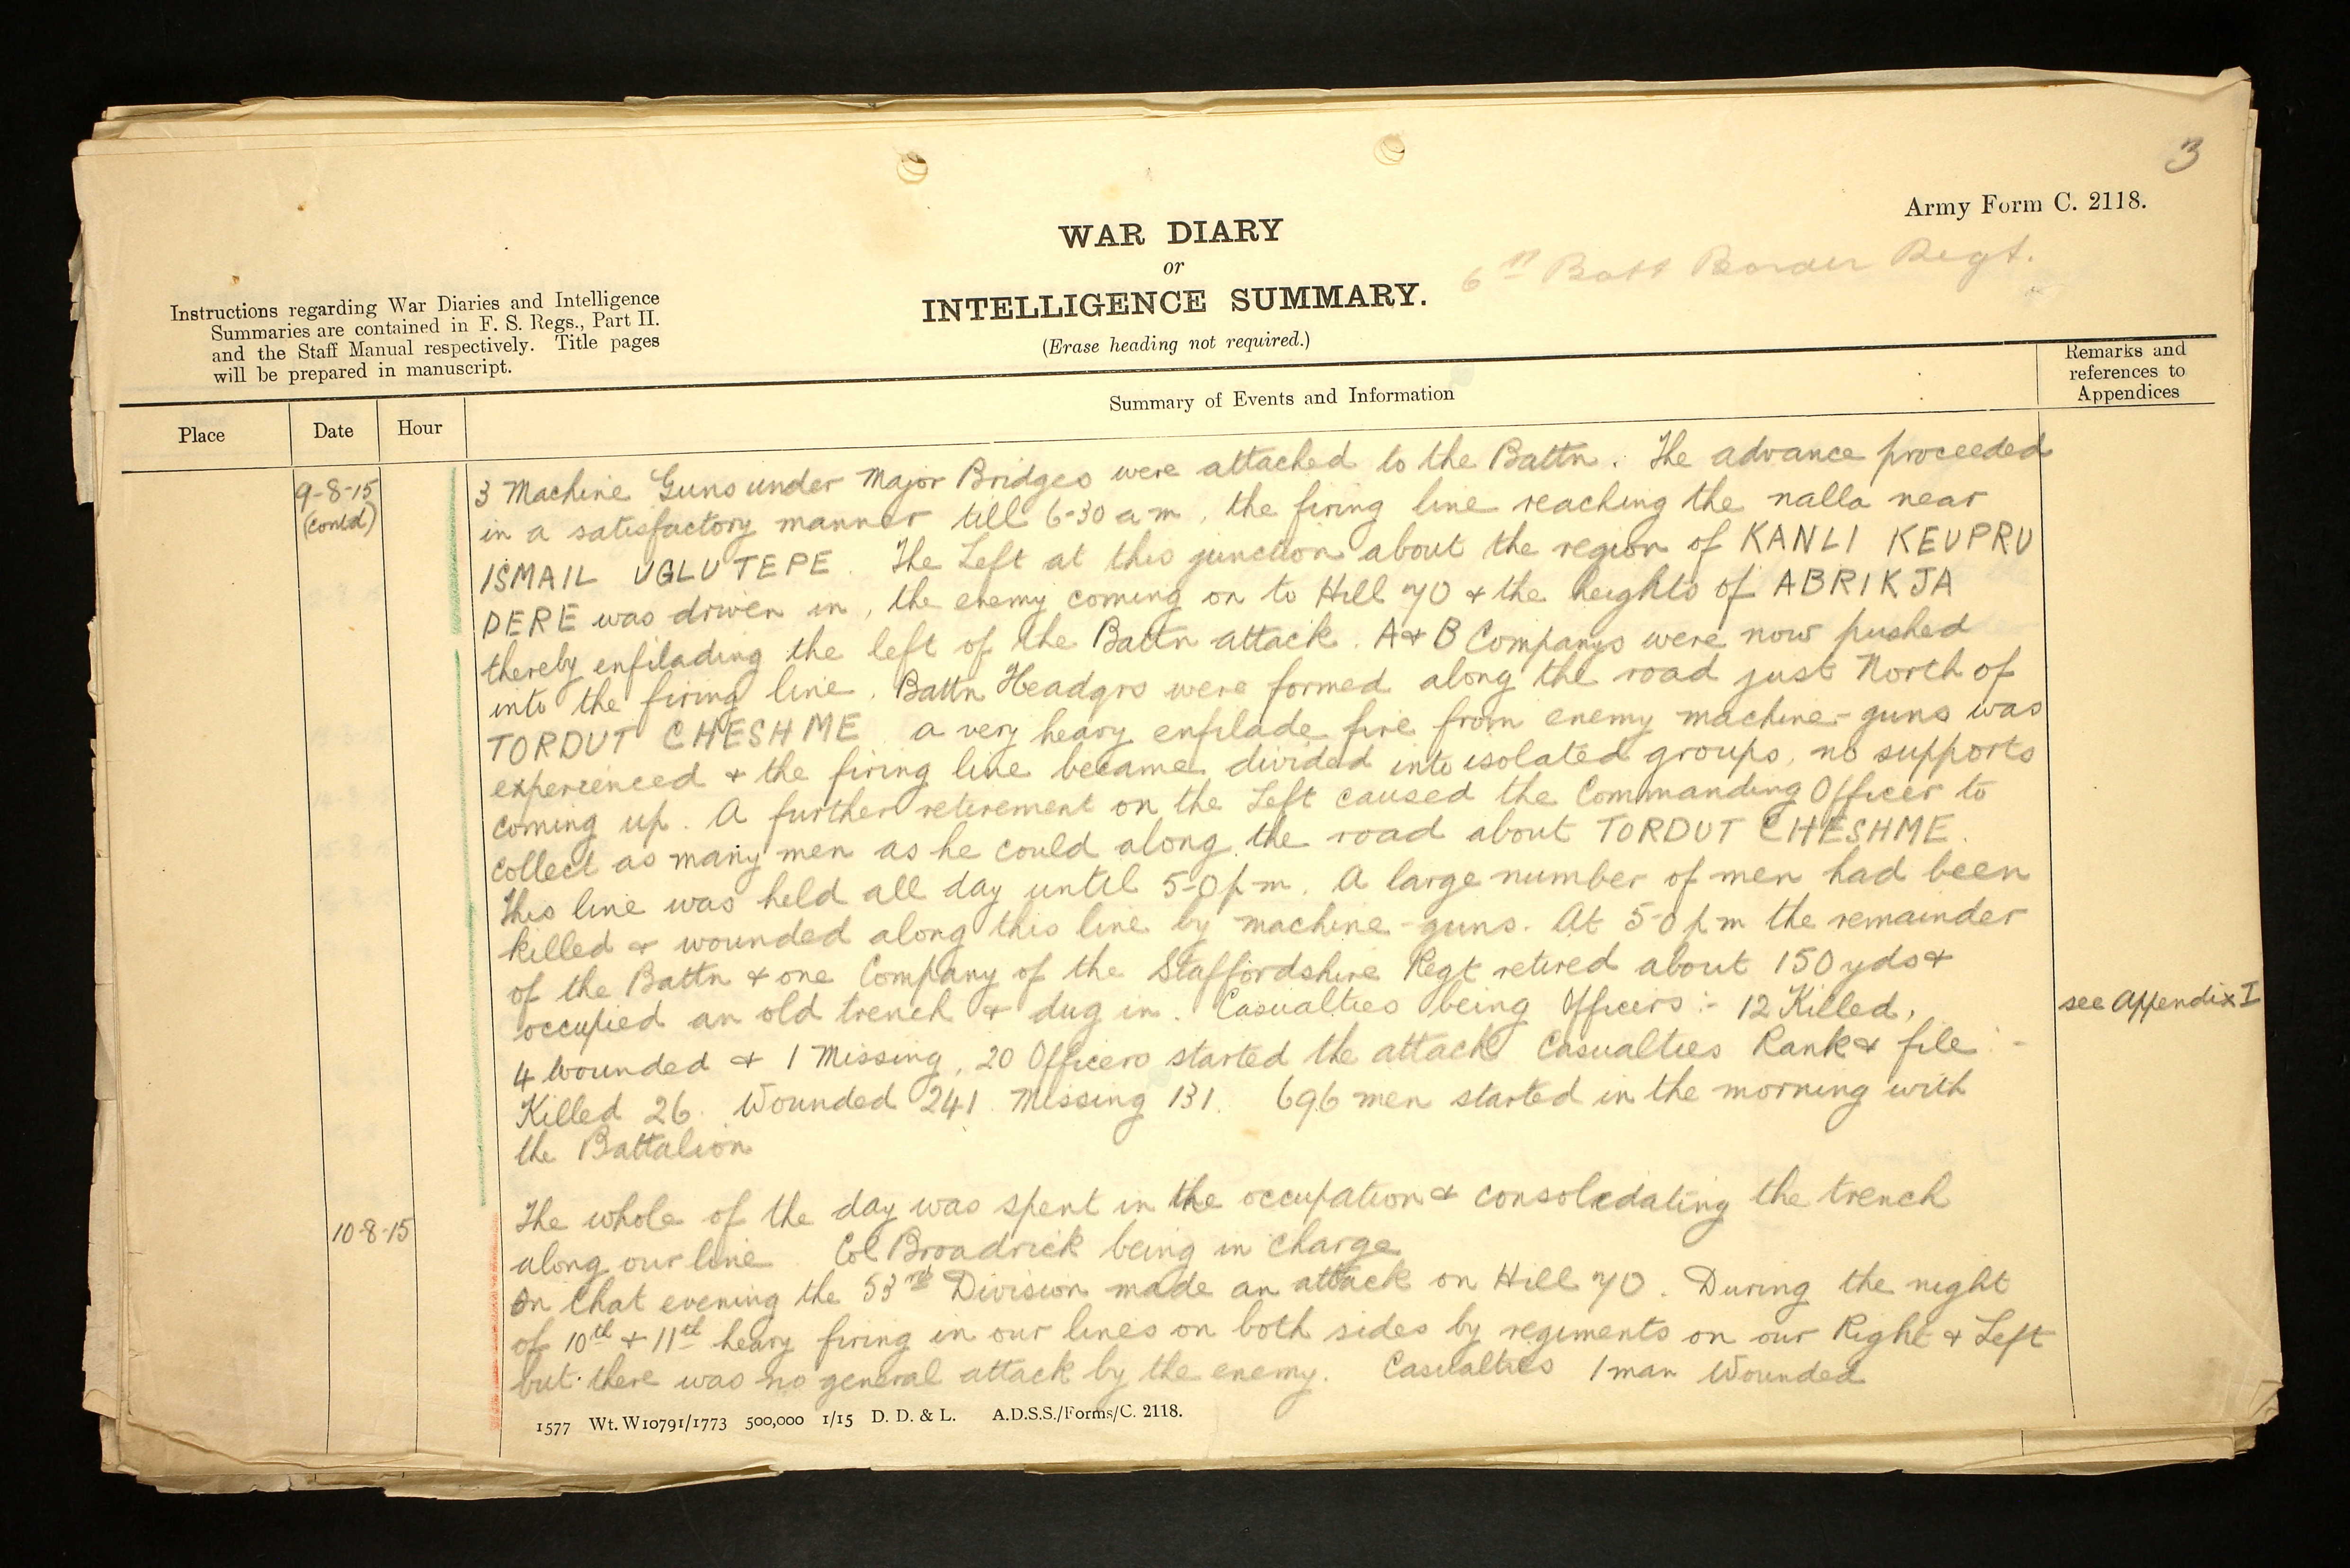 3
Army Form C. 2118.
WAR DIARY
or
INTELLIGENCE SUMMARY.
(Erase heading not required.)
6th Batt Border Regt.
Instructions regarding War Diaries and Intelligence
Summaries are contained in F. S. Regs., Part II.
and the Staff Manual respectively. Title pages
will be prepared in manuscript.
Place
Date
Hour
Summary of Events and Information
Remarks and
references to
Appendices
9-8-15
(contd)
3 Machine Guns under Major Bridges were attached to the Battn. The advance proceeded
in a satisfactory manner till 6-30 am, the firing line reaching the nalla near
ISMAIL UGLU TEPE. The Left at this junction about the region of KANLI KEUPRU
DERE was driven in, the enemy coming on to Hill 70 & the heights of ABRIKJA
thereby enfilading the left of the Battn attack. A & B Companys were now pushed
into the firing line. Battn Headqrs were formed along the road just North of
TORDUT CHESHME a very heavy enfilade fire from enemy machine-guns was
experienced & the firing line became divided into isolated groups, no supports
coming up. A further retirement on the Left caused the Commanding Officer to
collect as many men as he could along the road about TORDUT CHESHME.
This line was held all day until 5-0 pm. A large number of men had been
killed & wounded along this line by machine-guns. At 5-0 pm the remainder
of the Battn & one Company of the Staffordshire Regt retired about 150 yds &
occupied an old trench & dug in. Casualties being Officers:- 12 Killed,
4 Wounded & 1 Missing, 20 Officers started the attack Casualties Rank & file:-
Killed 26. Wounded 241. Missing 131. 696 men started in the morning with
the Battalion
see Appendix I
10-8-15
The whole of the day was spent in the occupation & consolidating the trench
along our line. Col Broadrick being in charge
On that evening the 53rd Division made an attack on Hill 70. During the night
of 10th & 11th heavy firing in our lines on both sides by regiments on our Right & Left
but there was no general attack by the enemy. Casualties 1 man Wounded
1577 Wt. W10791/1773 500,000 1/15 D. D. & L. A.D.S.S./Forms/C. 2118.